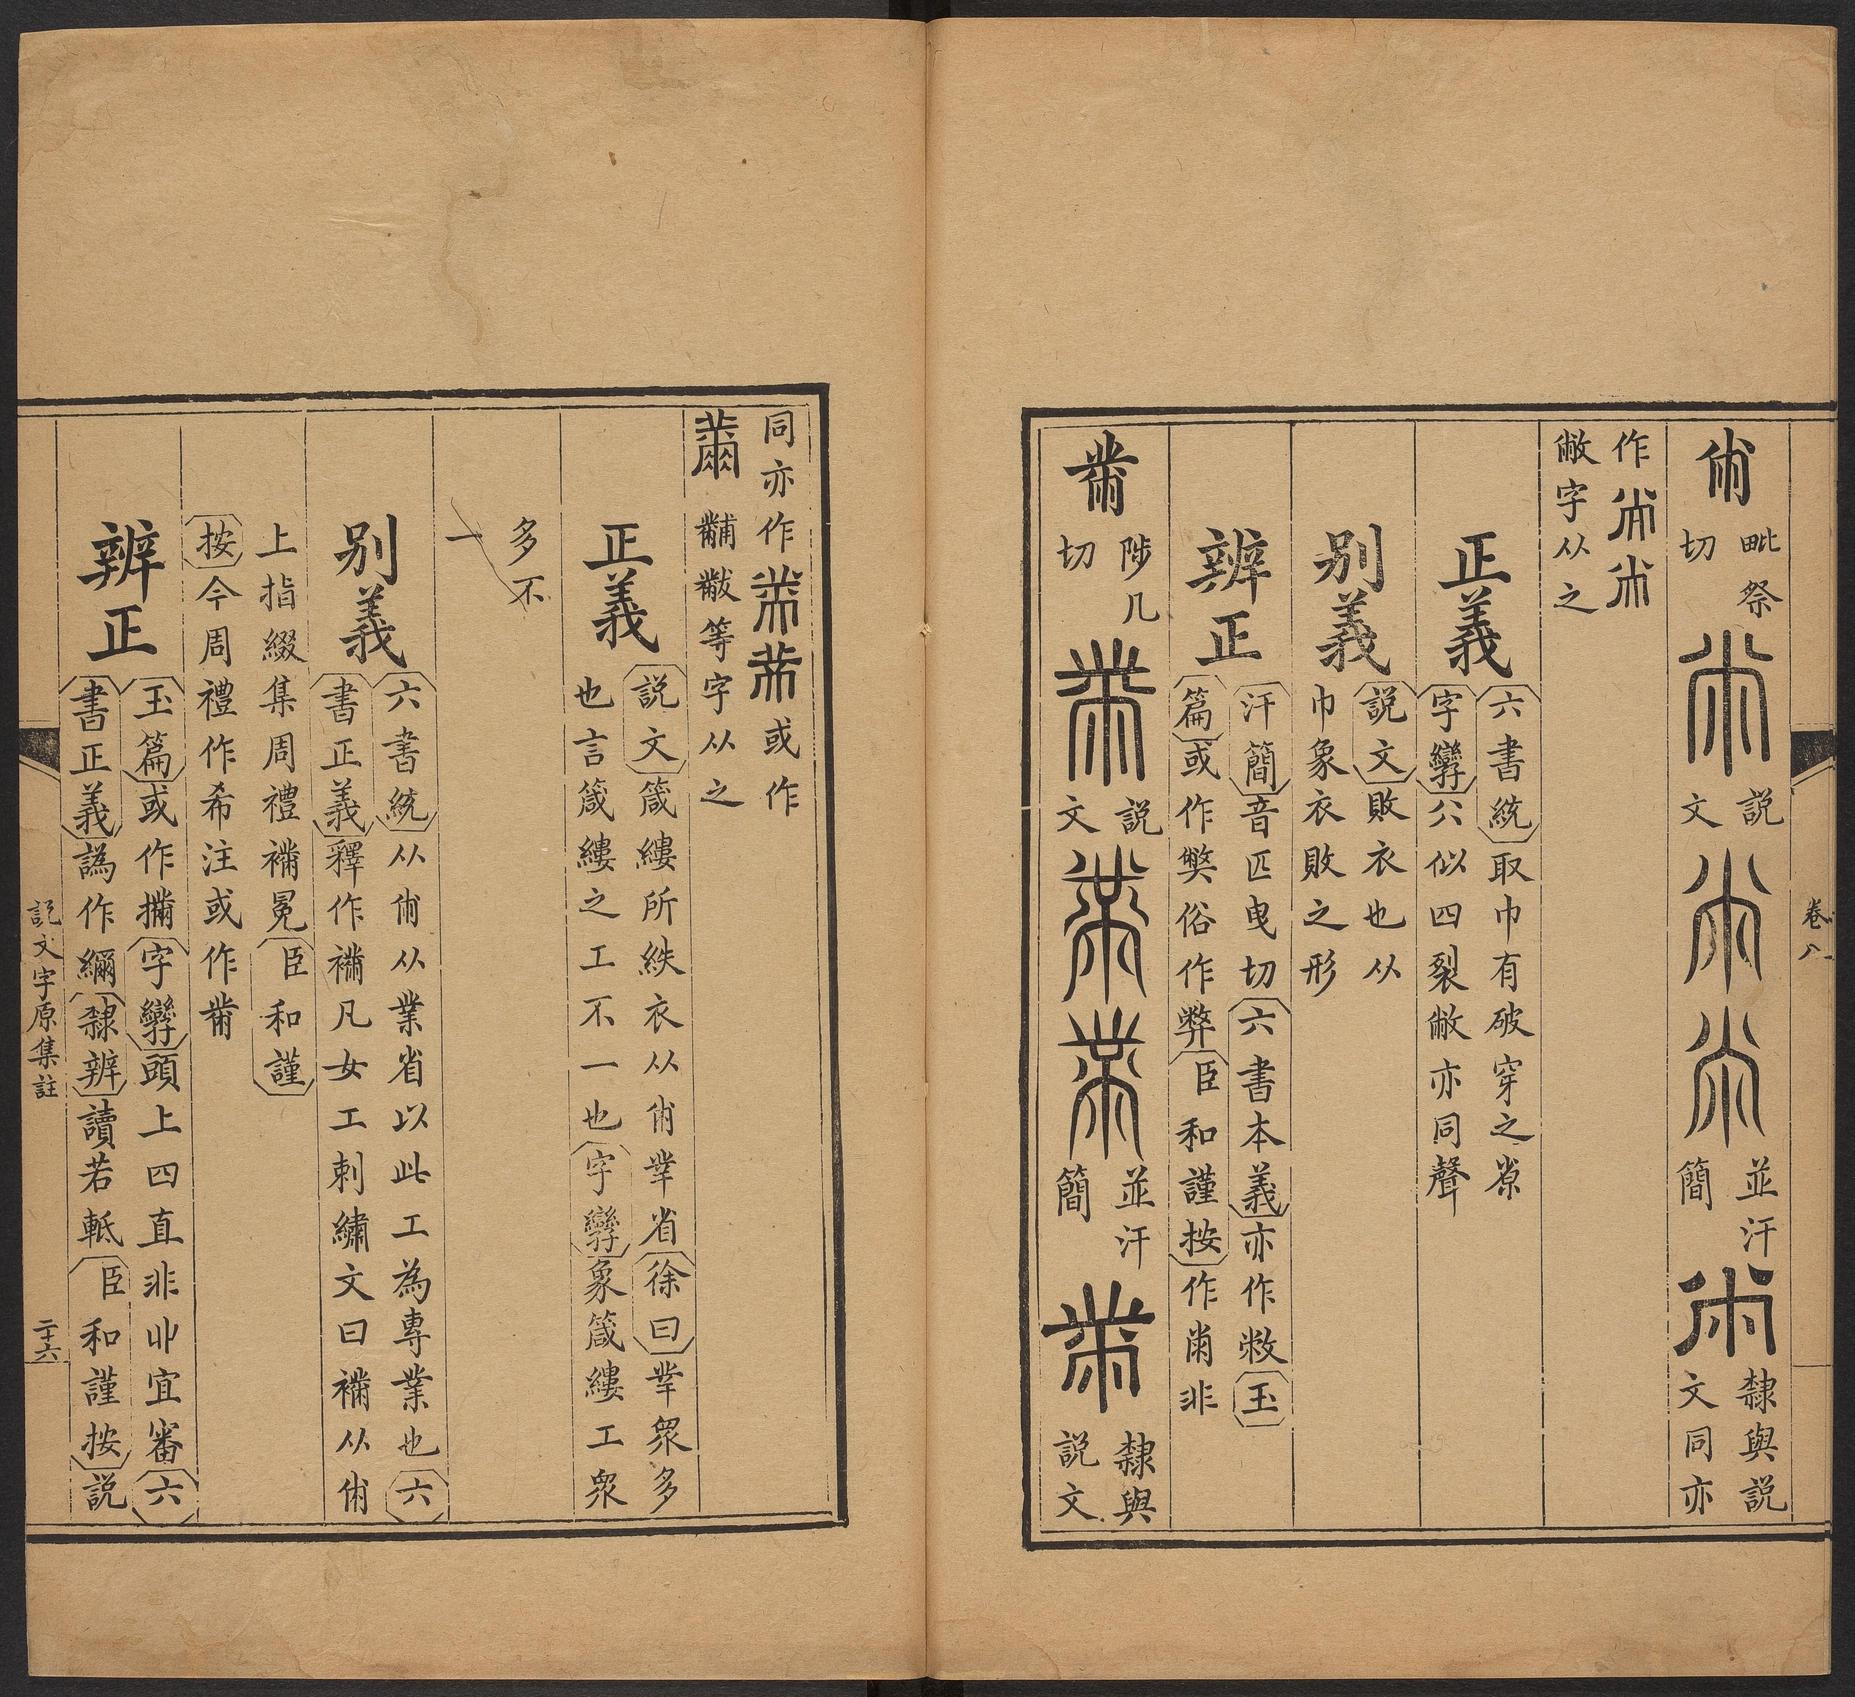 卷八
㡀
毗祭
切
説
文
並汗
簡
隸與説
文同亦
作
敝字从之
正義
六書統取巾有破穿之㒸
字孿八似四裂敝亦同聲
别義
説文敗衣也从
巾象衣敗之形
辨正
汗簡音匹曳切六書本義亦作敝玉
篇或作獘俗作弊臣和謹按作㡀非
黹
陟几
切
説
文
並汗
簡
隸與
説文
同亦作或作
黼黻等字从之
正義
説文箴縷所紩衣从㡀丵省徐曰丵衆多
也言箴縷之工不一也字孿象箴縷工衆
多不
一
别義
六書統从㡀从業省以此工為專業也六
書正義釋作襧凡女工刺繡文曰襧从㡀
上指綴集周禮襧冕臣和謹
按今周禮作希注或作黹
辨正
玉篇或作字孿頭上四直非丱宜審六
書正義譌作隸辨讀若軧臣和謹按説
説文字原集註
二十六